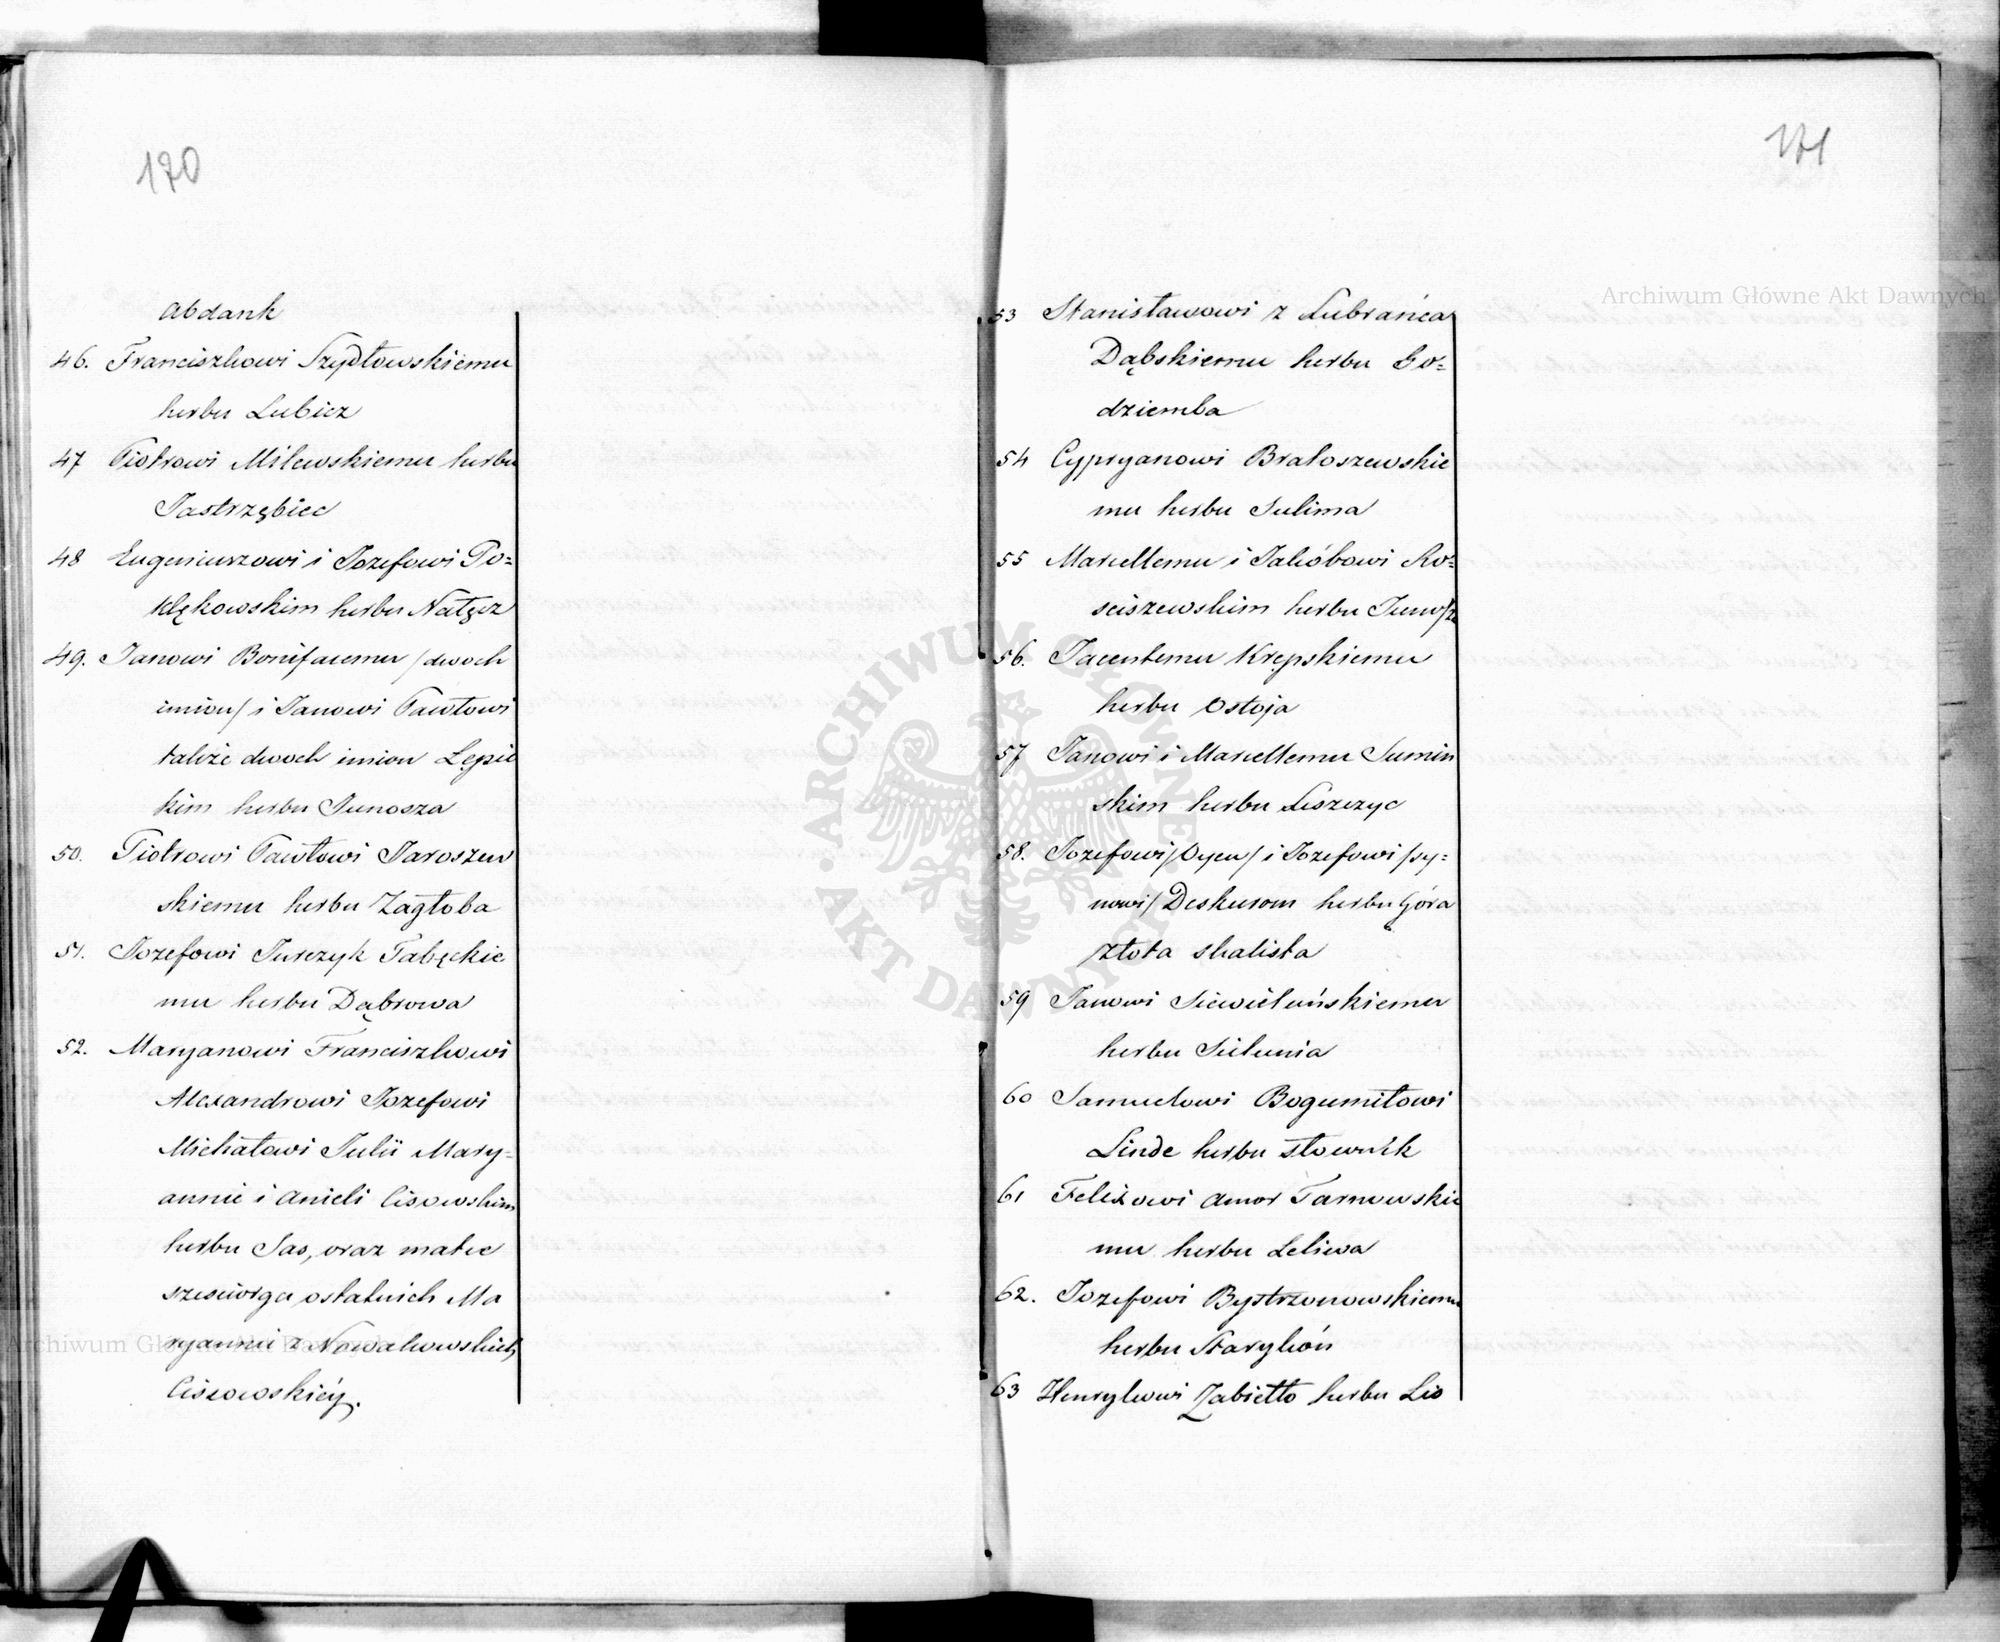 170
Abdank
46. Franciszkowi Szydłowskiemu
herbu Lubicz
47 Piotrowi Milewskiemu herbu
Jastrzębiec
48 Eugeniuszowi i Jozefowi Po=
klękowskim herbu Nałęcz
49. Janowi Bonifacemu /dwoch
imion/ i Janowi Pawłowi
także dwoch imion Łępic
kim herbu Junosza
50. Piotrowi Pawłowi Jaroszew
skiemu herbu Zagłoba
51. Jozefowi Jurczyk Tabęckie
mu herbu Dąbrowa
52. Maryanowi Franciszkowi
Alexandrowi Jozefowi
Michałowi Julii Mary=
annie i Anieli Cisowskim
herbu Sas, oraz matce
sześciorga ostatnich Ma
ryannie z Nowakowskich
Cissowskiéy.
171
53 Stanisławowi z Lubrańca
Dąbskiemu herbu Go=
dziemba
54 Cypryanowi Bratoszewskie
mu herbu Sulima
55 Marcellemu i Jakóbowi Ro=
sciszewskim herbu Junosza
56. Jacentemu Krępskiemu
herbu Ostoja
57 Janowi i Marcellemu Sumin
skim herbu Leszczyc
58. Jozefowi /Oycu/ i Jozefowi /sy=
nowi/ Deskurom herbu Góra
złota skalista
59 Janowi Siewieluńskiemu
herbu Sielunia
60 Samuelowi Bogumiłowi
Linde herbu Słownik
61 Felixowi Amor Tarnowskie
mu herbu Leliwa
62. Jozefowi Bystrzonowskiemu
herbu Starykóń
63 Henrykowi Zabiełło herbu Lis
Archiwum Główne Akt Dawnych
Archiwum Główne Akt Dawnych
ARCHIWUM GŁÓWNE AKT DAWNYCH